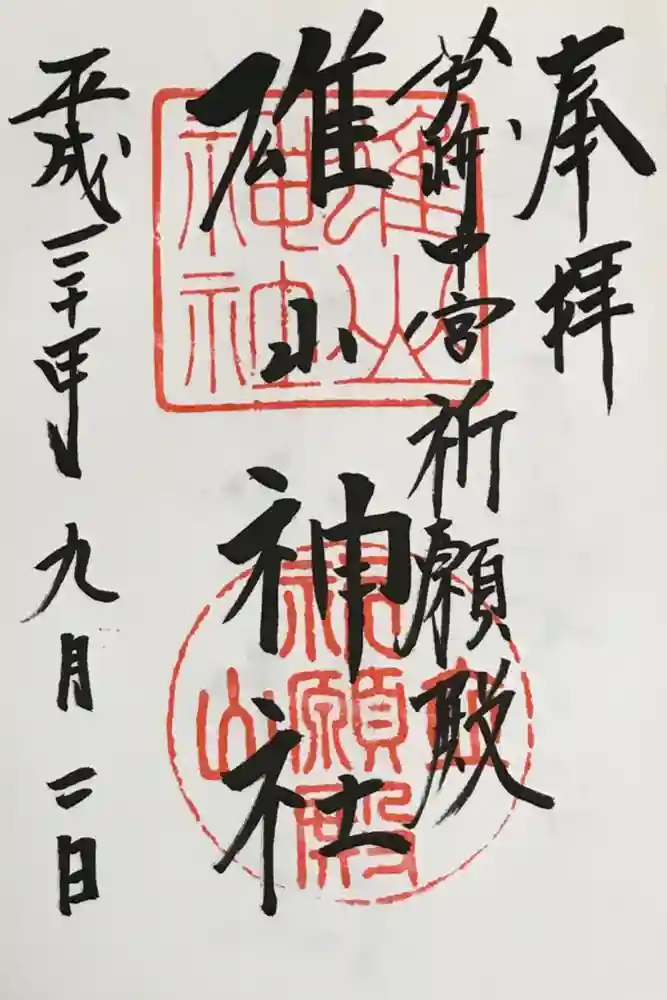 奉拝
芦峅中宮祈願殿
雄山神社
平成三十年九月二日
雄山神社
立山祈願殿